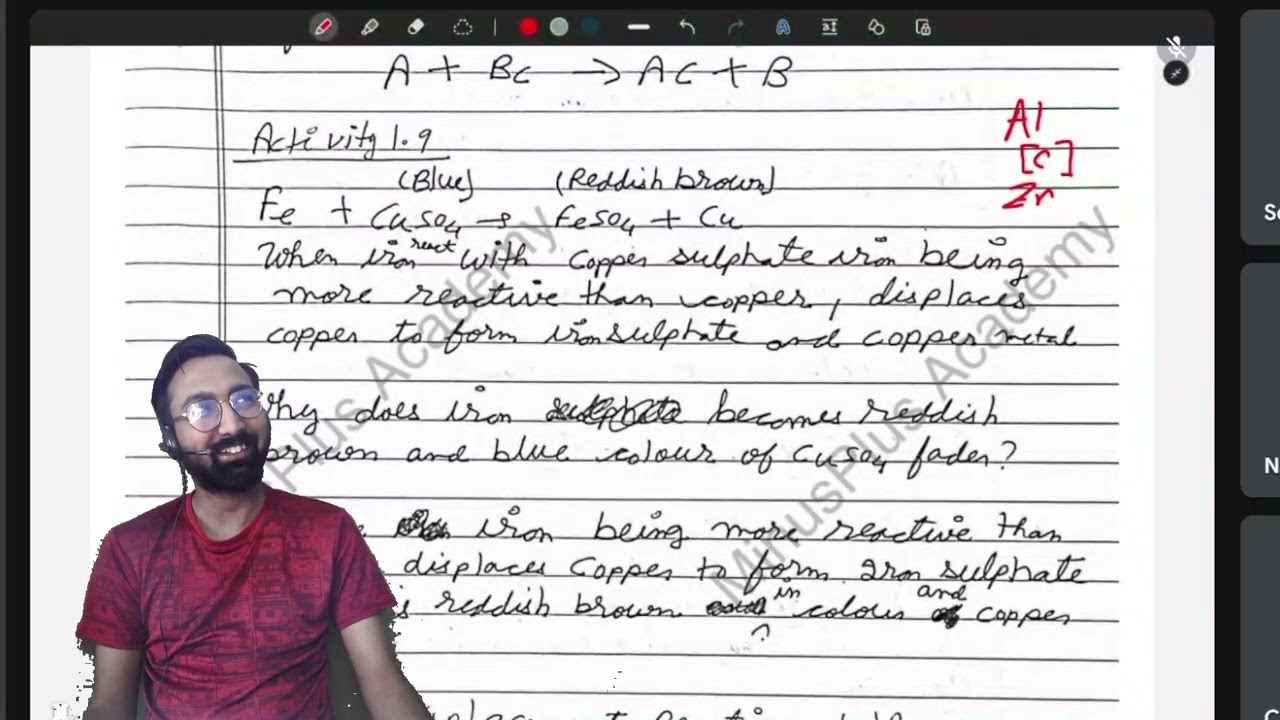 A + BC → AC + B
Activity 1.9
(Blue) (Reddish brown)
Fe + CuSO4 → FeSO4 + Cu
When iron react with copper sulphate iron being
more reactive than copper, displaces
copper to form iron sulphate and copper metal
hy does iron becomes reddish
brown and blue colour of CuSO4 fades?
iron being more reactive than
displaces Copper to form Iron sulphate
s reddish brown in colour and copper
Al
[C]
Zn
Plus Academy
MinusPlus Academy
N